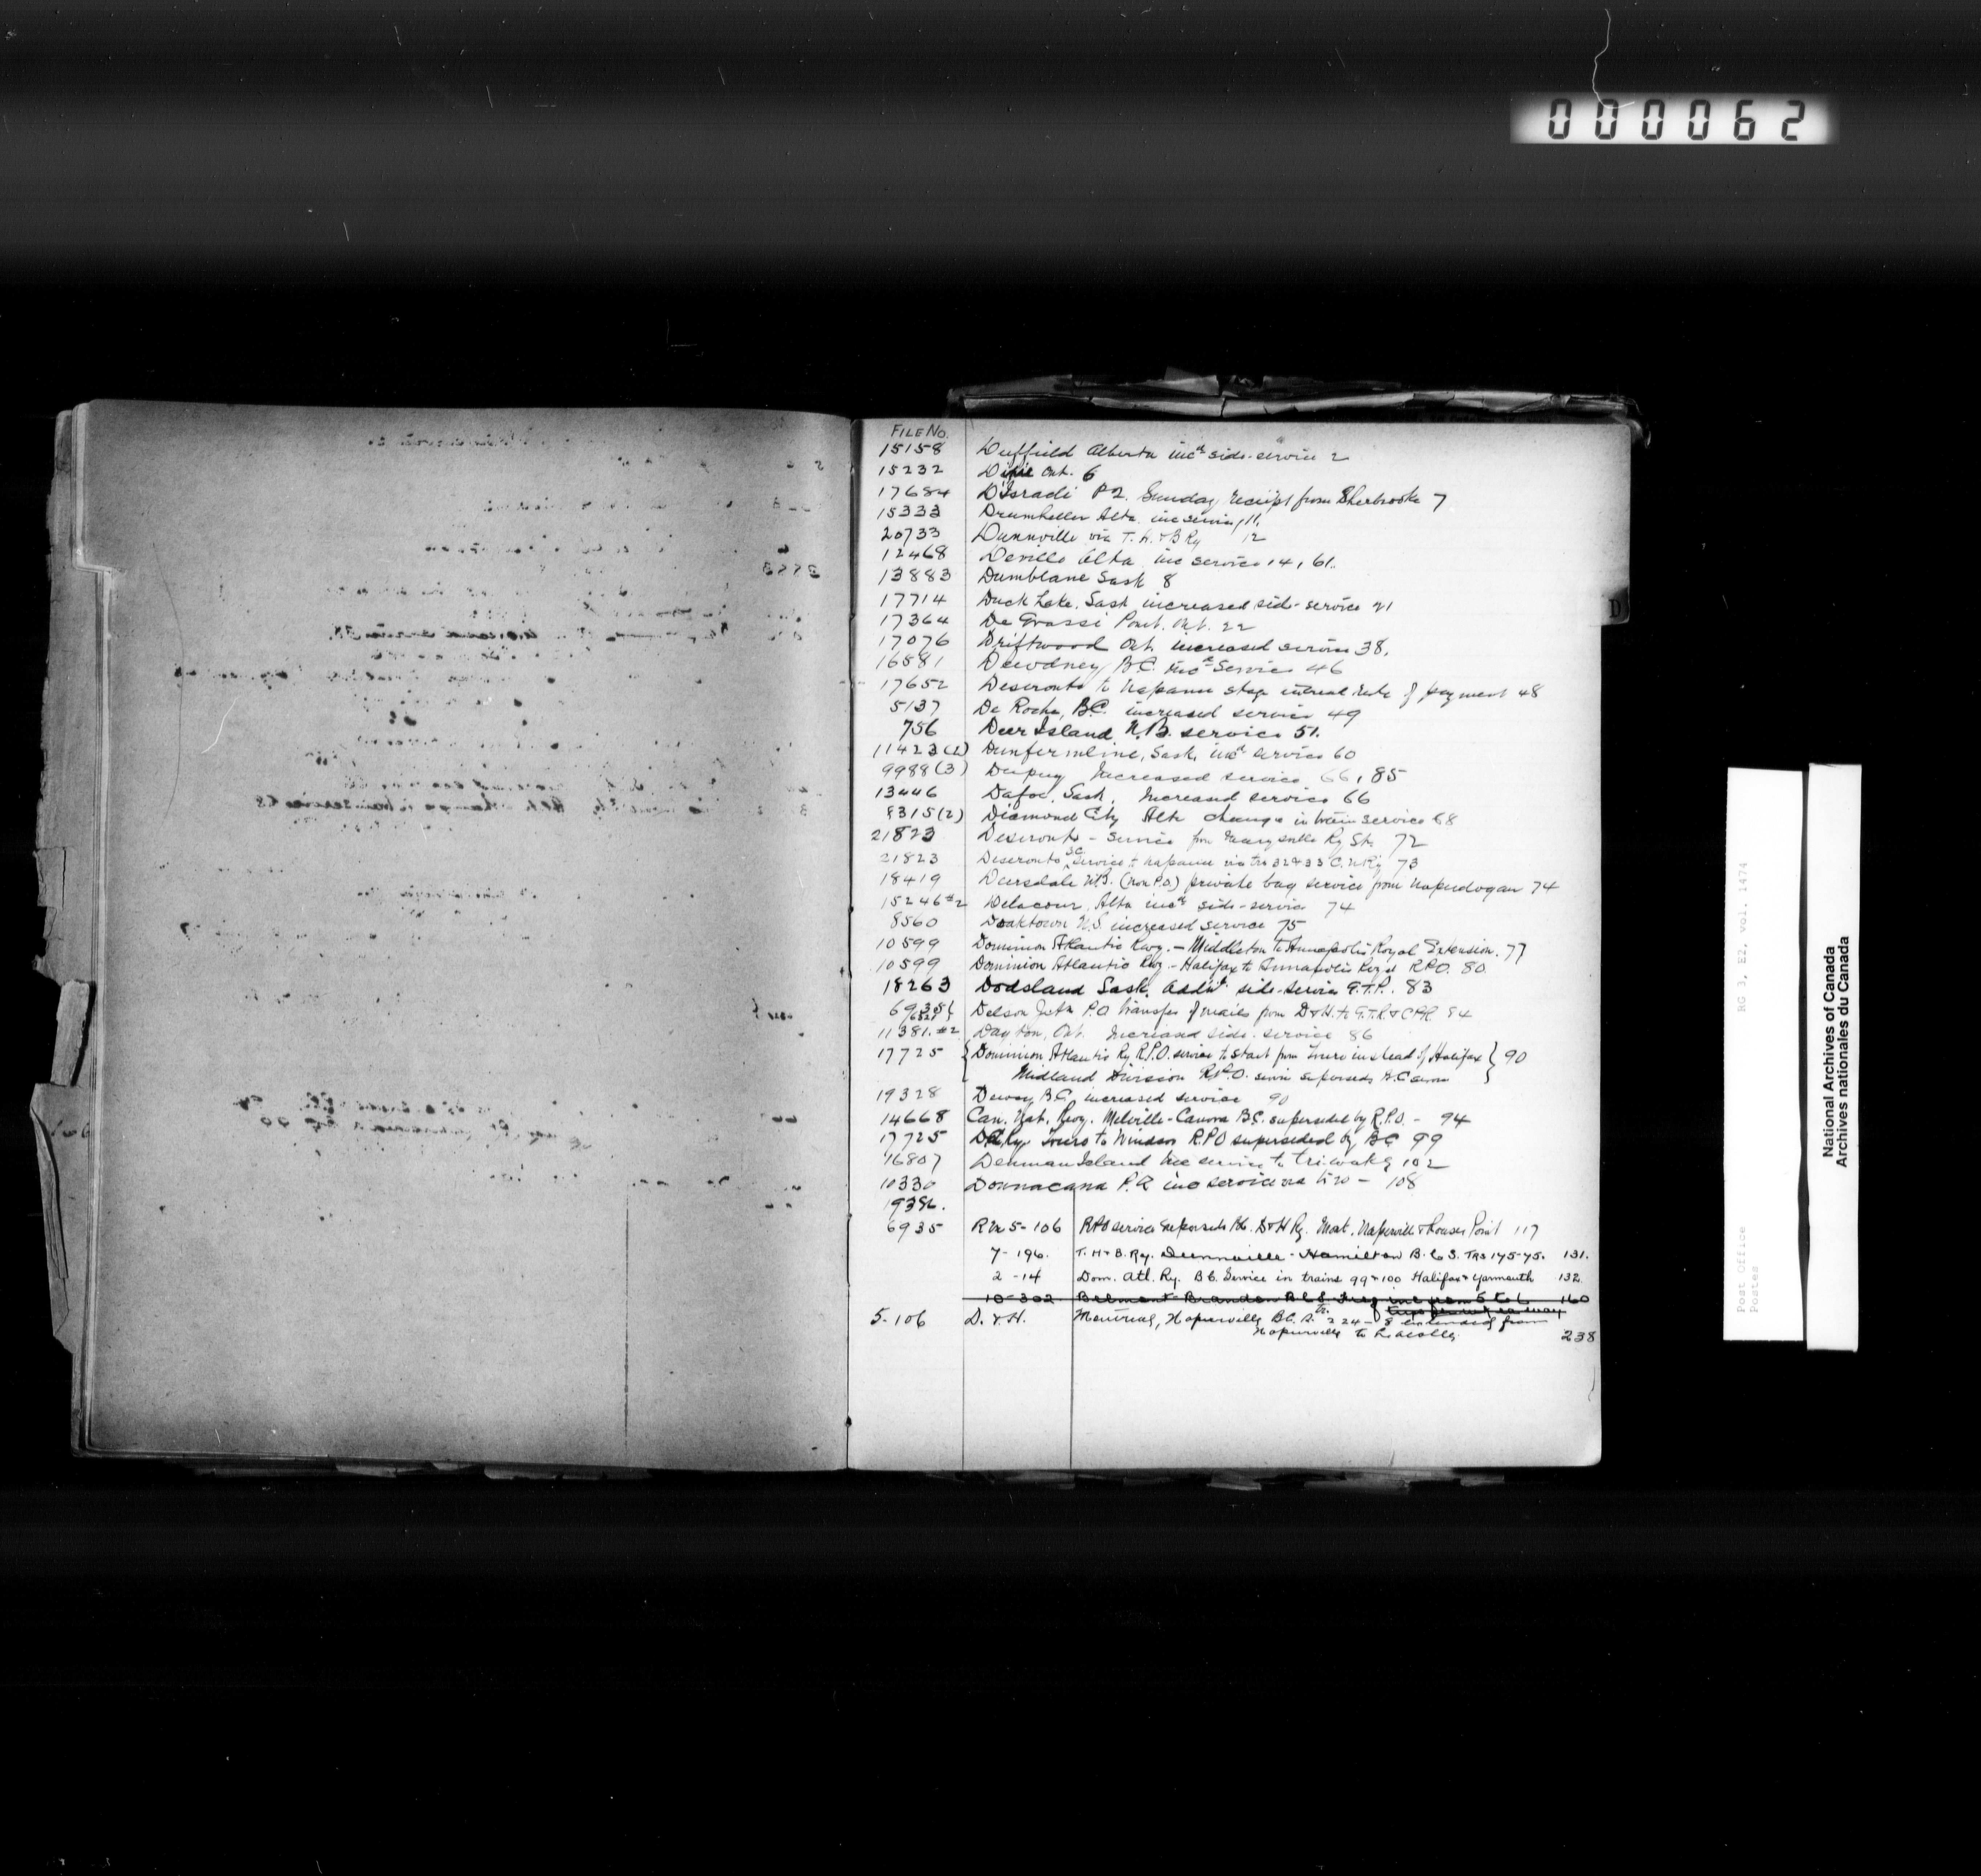 000062
FILE No.
15158 Duffield Alberta incd side-service 2
15232 Dixie Ont. 6
17684 D'Israeli P2. Sunday receipt from Sherbrooke 7
15333 Drumheller Alta. inc service 11.
20733 Dunnville via T.H.&B Ry 12
12468 Deville Alta inc service 14, 61.
13883 Dumblane Sask 8
17714 Duck Lake, Sask increased side-service 21
17364 De Grassi Point. Ont. 22
17076 Driftwood Ont. increased service 38.
16581 Dewdney BC. incd Service 46
17652 Deseronto to Napanee stage rate of payment 48
5137 De Roche, B.C. increased service 49
756 Deer Island N.B. service 51.
11423(2) Dunfermline, Sask, incd service 60
9988(3) Dupuy Increased service 66, 85
13446 Dafoe, Sask. Increased service 66
8315(2) Diamond City Alta change in train service 68
21823 Deseronto - service from Marysville Ry Stn 72
21823 Deseronto BC service to Napanee via trs 32 & 33 C.N.Ry 73
18419 Deersdale N.B. (non P.O.) private bag service from Napudogan 74
15246#2 Delacour, Alta incd side-service 74
8560 Doaktown N.S increased service 75
10599 Dominion Atlantic Rwy. - Middleton to Annapolis Royal Extension. 77
10599 Dominion Atlantic Rwy - Halifax to Annapolis Royal R.P.O. 80
18263 Dodsland Sask. Addnl side-service G.T.P. 83
6935 Delson Jctn P.O transfer of mails from D&H. to G.T.R. & CPR. 84
11381.#2 Dayton, Ont. Increased side-service 86
17725 { Dominion Atlantic Ry R.P.O. service to start from Truro instead of Halifax } 90
Midland Division R.P.O. service supersedes B.C service
19328 Dewey B.C. increased service 90
14668 Can. Nat. Rwy. Melville-Canora B.C. superseded by R.P.O. - 94
17725 D.A.Ry. Truro to Windsor R.P.O superseded by BC 99
16807 Denman Island inc service to tri-wkly 102
10330 Donnacona P.Q inc service via - 108
19386.
6935 RM 5-106 RPO service supersedes BC. D&H Ry. Mont. Napierville & Rouses Point 117
7-196. T.H.&B. Ry. Dunnville-Hamilton B.C.S. TRS 175-75. 131.
2-14 Dom. Atl. Ry. B.C. Service in trains 99 & 100 Halifax & Yarmouth 132.
10-302 Belmont-Brandon B.C.S. Freq inc from 5 to 6 160
5-106 D. & H. Montreal, Napierville B.C. S. tr. 224 - 8 extended from
Napierville to Lacolle 238
D
Post Office RG 3, E2, vol. 1474
Postes
National Archives of Canada
Archives nationales du Canada